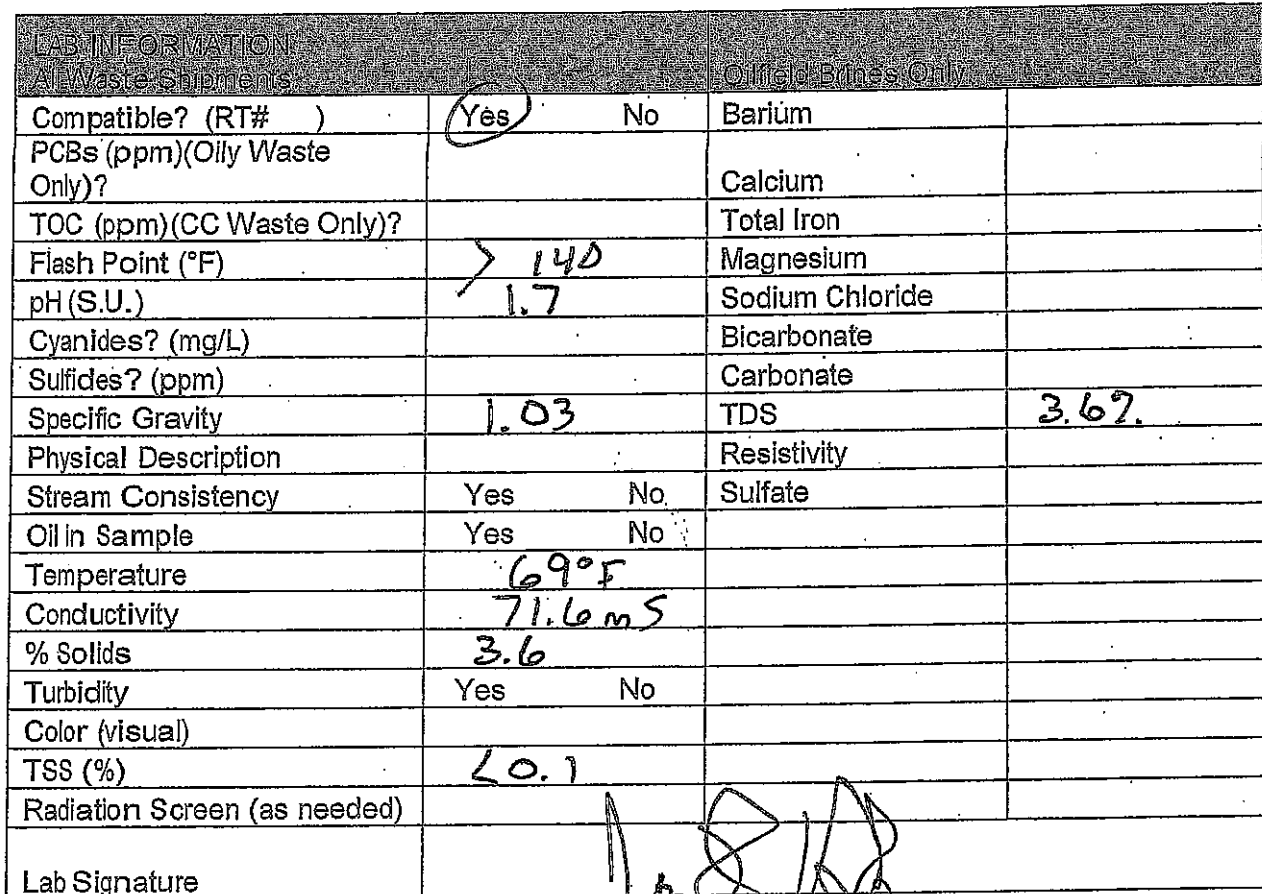 LAB INFORMATION
All Waste Shipments Oilfield Brines Only
Compatible? (RT# ) Yes No Barium
PCBs (ppm)(Oily Waste
Only)? Calcium
TOC (ppm)(CC Waste Only)? Total Iron
Flash Point (°F) > 140 Magnesium
pH (S.U.) 1.7 Sodium Chloride
Cyanides? (mg/L) Bicarbonate
Sulfides? (ppm) Carbonate
Specific Gravity 1.03 TDS 3.6%
Physical Description Resistivity
Stream Consistency Yes No Sulfate
Oil in Sample Yes No
Temperature 69°F
Conductivity 71.6 mS
% Solids 3.6
Turbidity Yes No
Color (visual)
TSS (%) <0.1
Radiation Screen (as needed)
Lab Signature